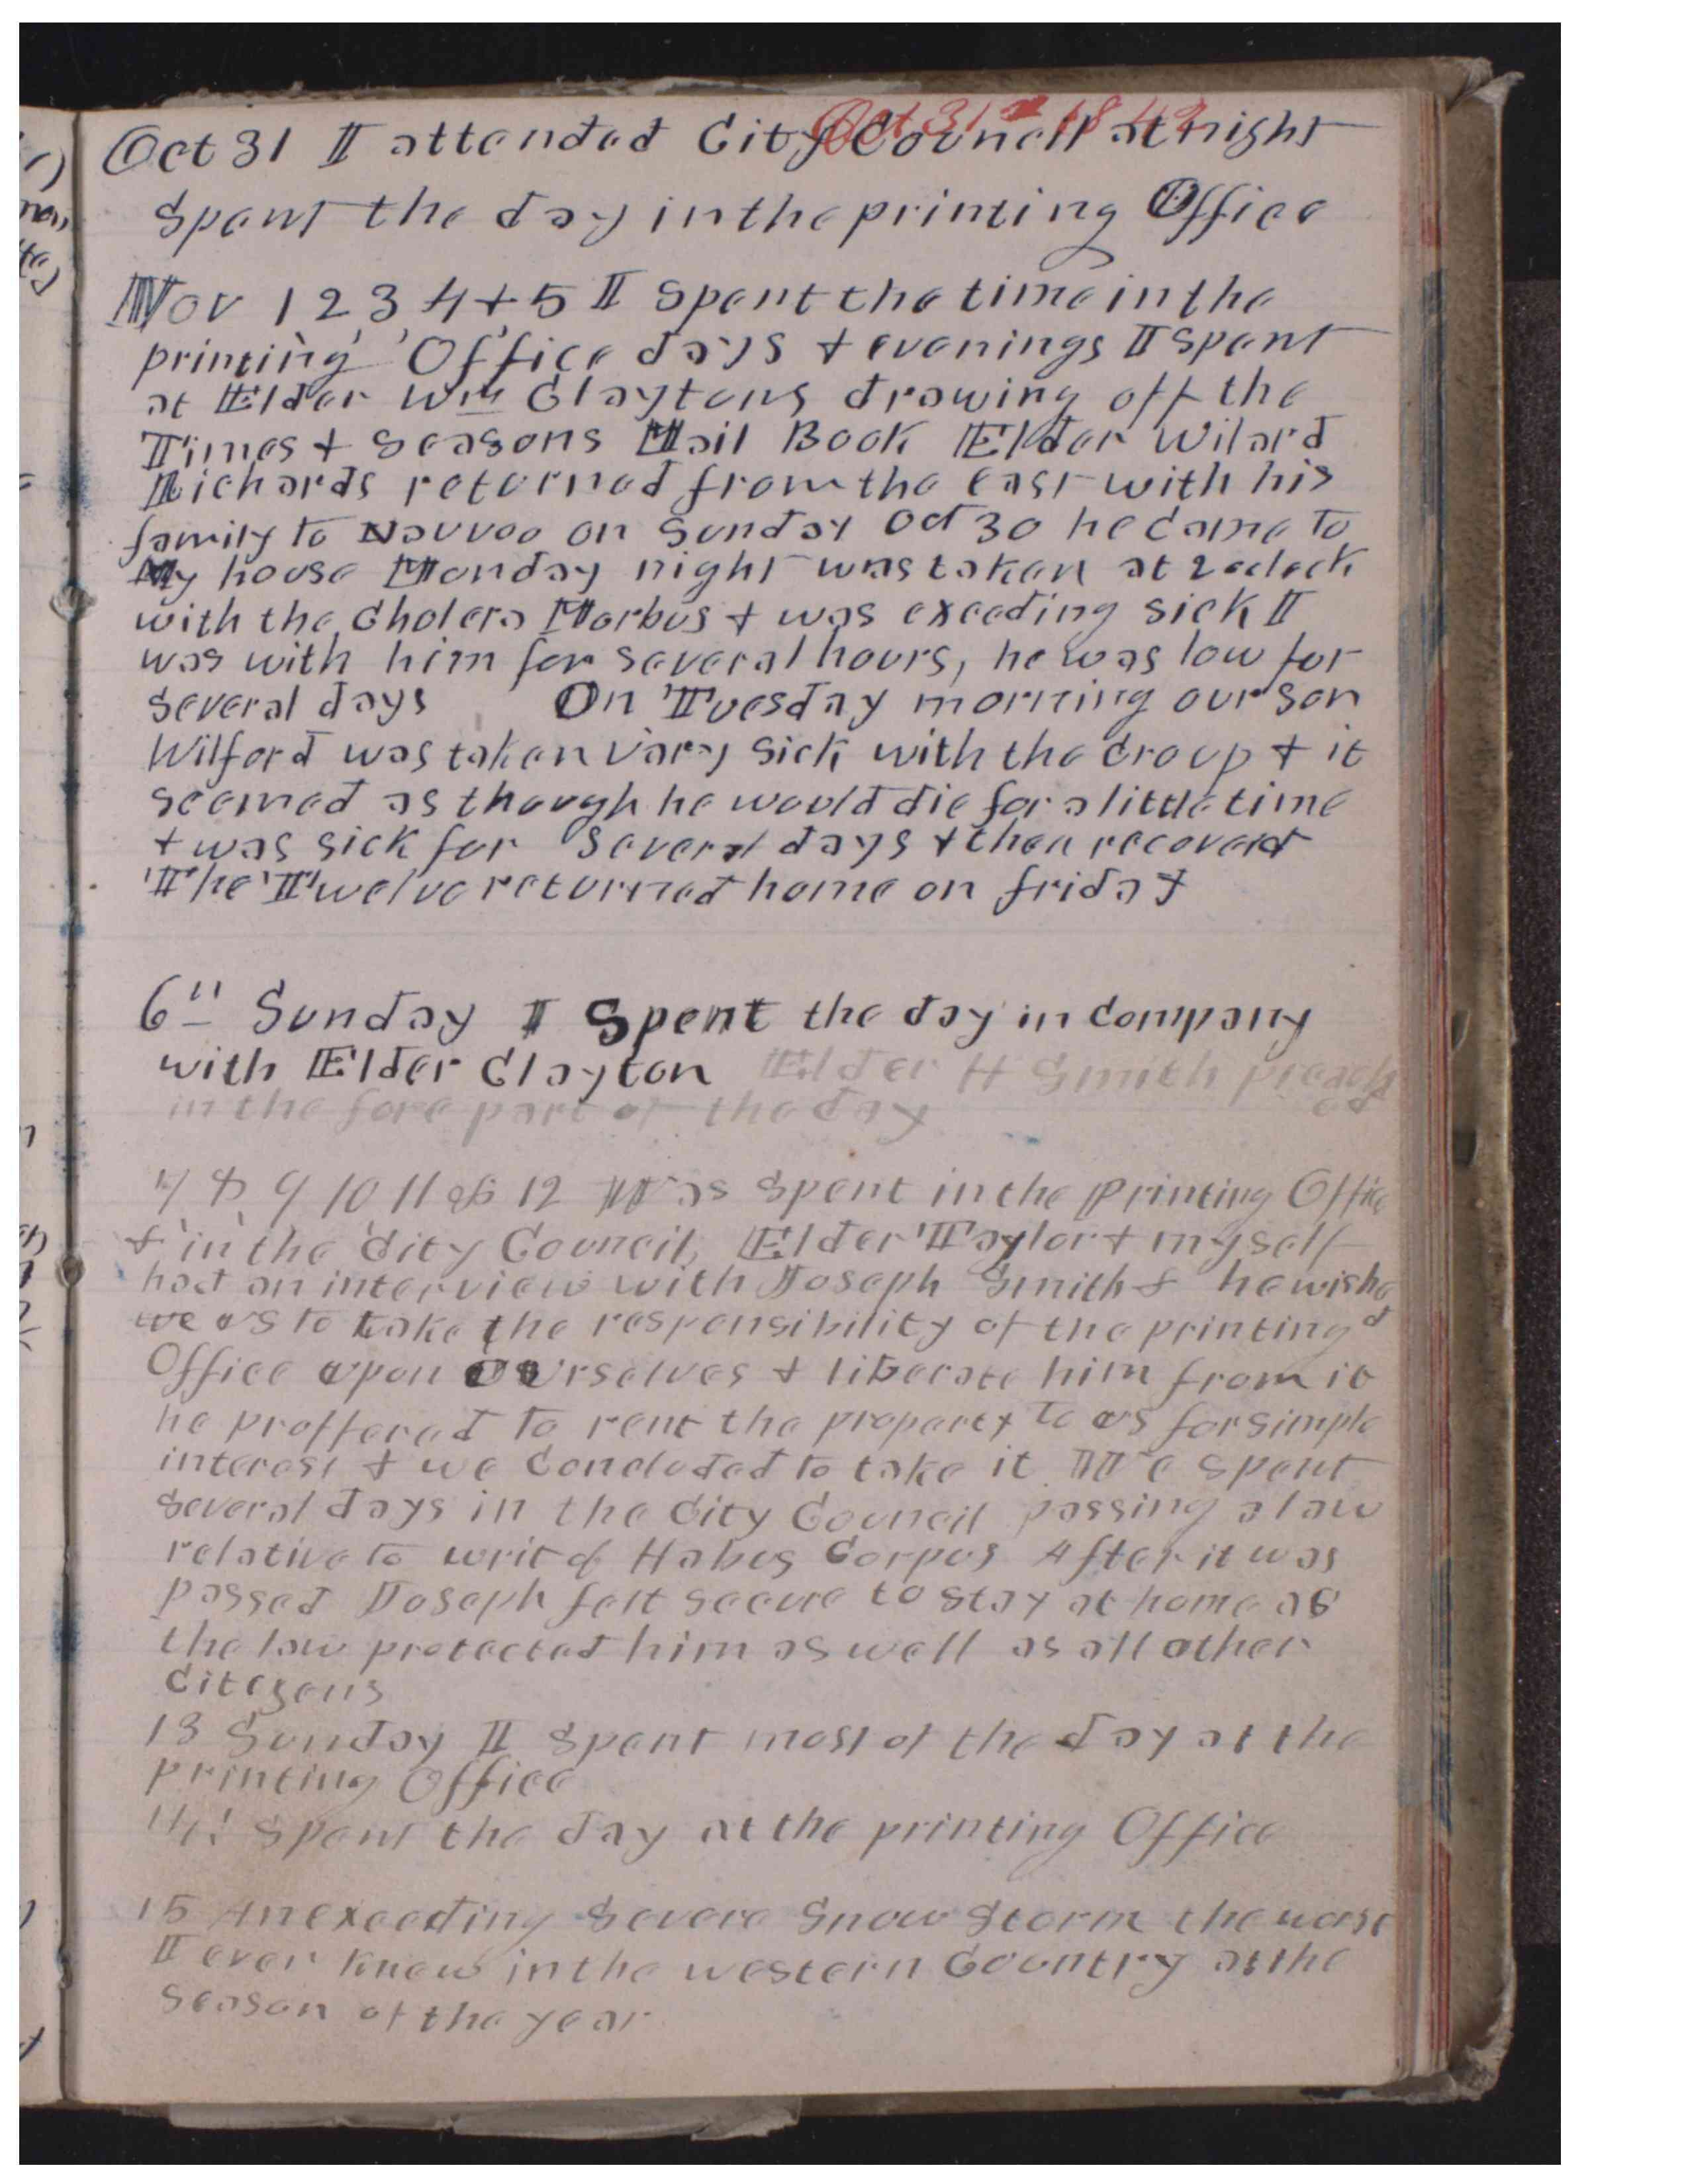 Oct 31st 1842
Oct 31 I attended City Council at night
Spent the day in the printing Office
Nov 1 2 3 4 + 5 I spent the time in the
printing Office days + evenings I spent
at Elder Wm Claytons drawing off the
Times + Seasons Mail Book Elder Wilard
Richards returned from the east with his
family to Nauvoo on Sunday Oct 30 he came to
My house Monday night was taken at 2 oclock
with the Cholera Morbus + was exceding sick I
was with him for several hours, he was low for
several days On Tuesday morning our son
Wilford was taken vary sick with the croup + it
seemed as though he would die for a little time
+ was sick for several days + then recoverd
The Twelve returned home on friday
6th Sunday I Spent the day in company
with Elder Clayton Elder H Smith preach
ed
in the fore part of the day
7 8 9 10 11 & 12 Was spent in the Printing Office
& in the City Council, Elder Taylor + myself
had an interview with Joseph Smith & he wishe
d
we us to take the responsibility of the printing
Office upon ourselves + liberate him from it
he proffered to rent the property to us for simple
interest + we concluded to take it We spent
several days in the City Council passing a law
relative to writ of Habes Corpus After it was
passed Joseph felt secure to stay at home as
the law protected him as well as all other
Citezens
13 Sunday I spent most of the day at the
printing Office
14th Spent the day at the printing Office
15 An exceeding severe Snow Storm the worst
I ever knew in the western Country at the
season of the year